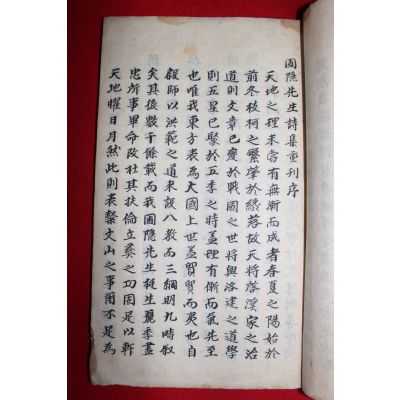 圃隱先生詩集重刊序
天地之理未嘗有無漸而成者春夏之陽始於
前冬枝柯之繁肇於緑落故天將啓漢家之治
道則文章已變於戰國之世將興洛建之道學
則五星已聚於五季之時盖理有漸而氣先至
也唯我東方表為大國上世盖貿貿而夷也自
殷師以洪範之道来設八教而三綱明九疇叙
矣其後數千餘載而我圃隱先生挺生麗季盡
忠所事革命改社其扶倫立彛之功固足以軒
天地曜日月然此則表黎文山之事爾不足為